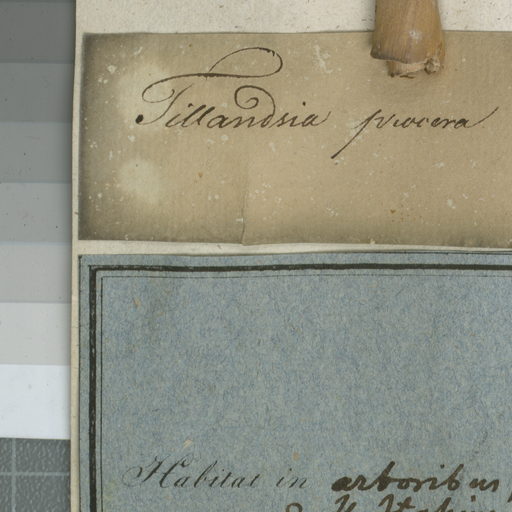 Tillandsia procera
Habitat in arboribus